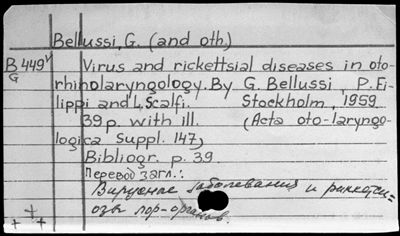 Bellussi, G. (and oth.)
B 449ᵛ Virus and rickettsial diseases in oto-
G rhinolaryngology. By G. Bellussi, P. Fi-
lippi and L. Scalfi. Stockholm, 1959.
39 p. with ill. (Acta oto-laryngo-
logica Suppl. 147)
Bibliogr. p. 39.
Перевод загл.:
Вирусные заболевания и риккетси-
озы лор-органов.